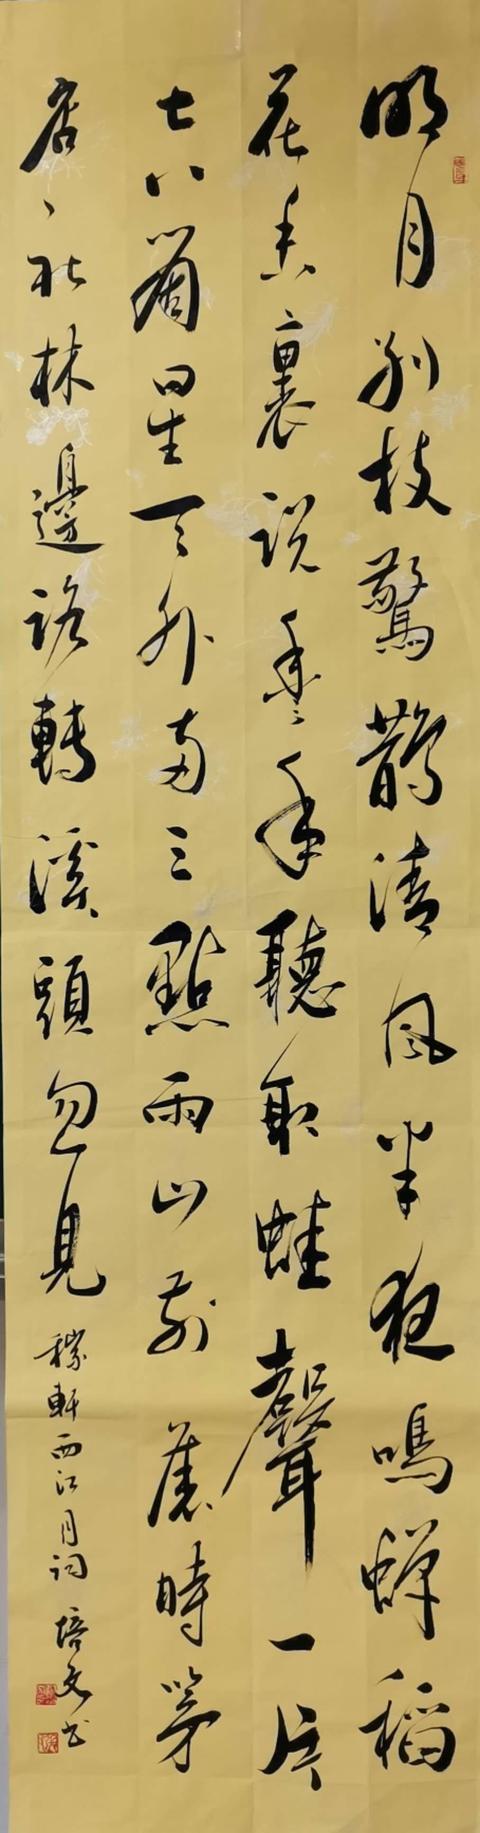 明月別枝驚鵲清風半夜鳴蟬稻
花香裏説豐年聽取蛙聲一片
七八箇星天外兩三點雨山前舊時茅
店社林邊路轉溪頭忽見
稼軒西江月詞 培文书